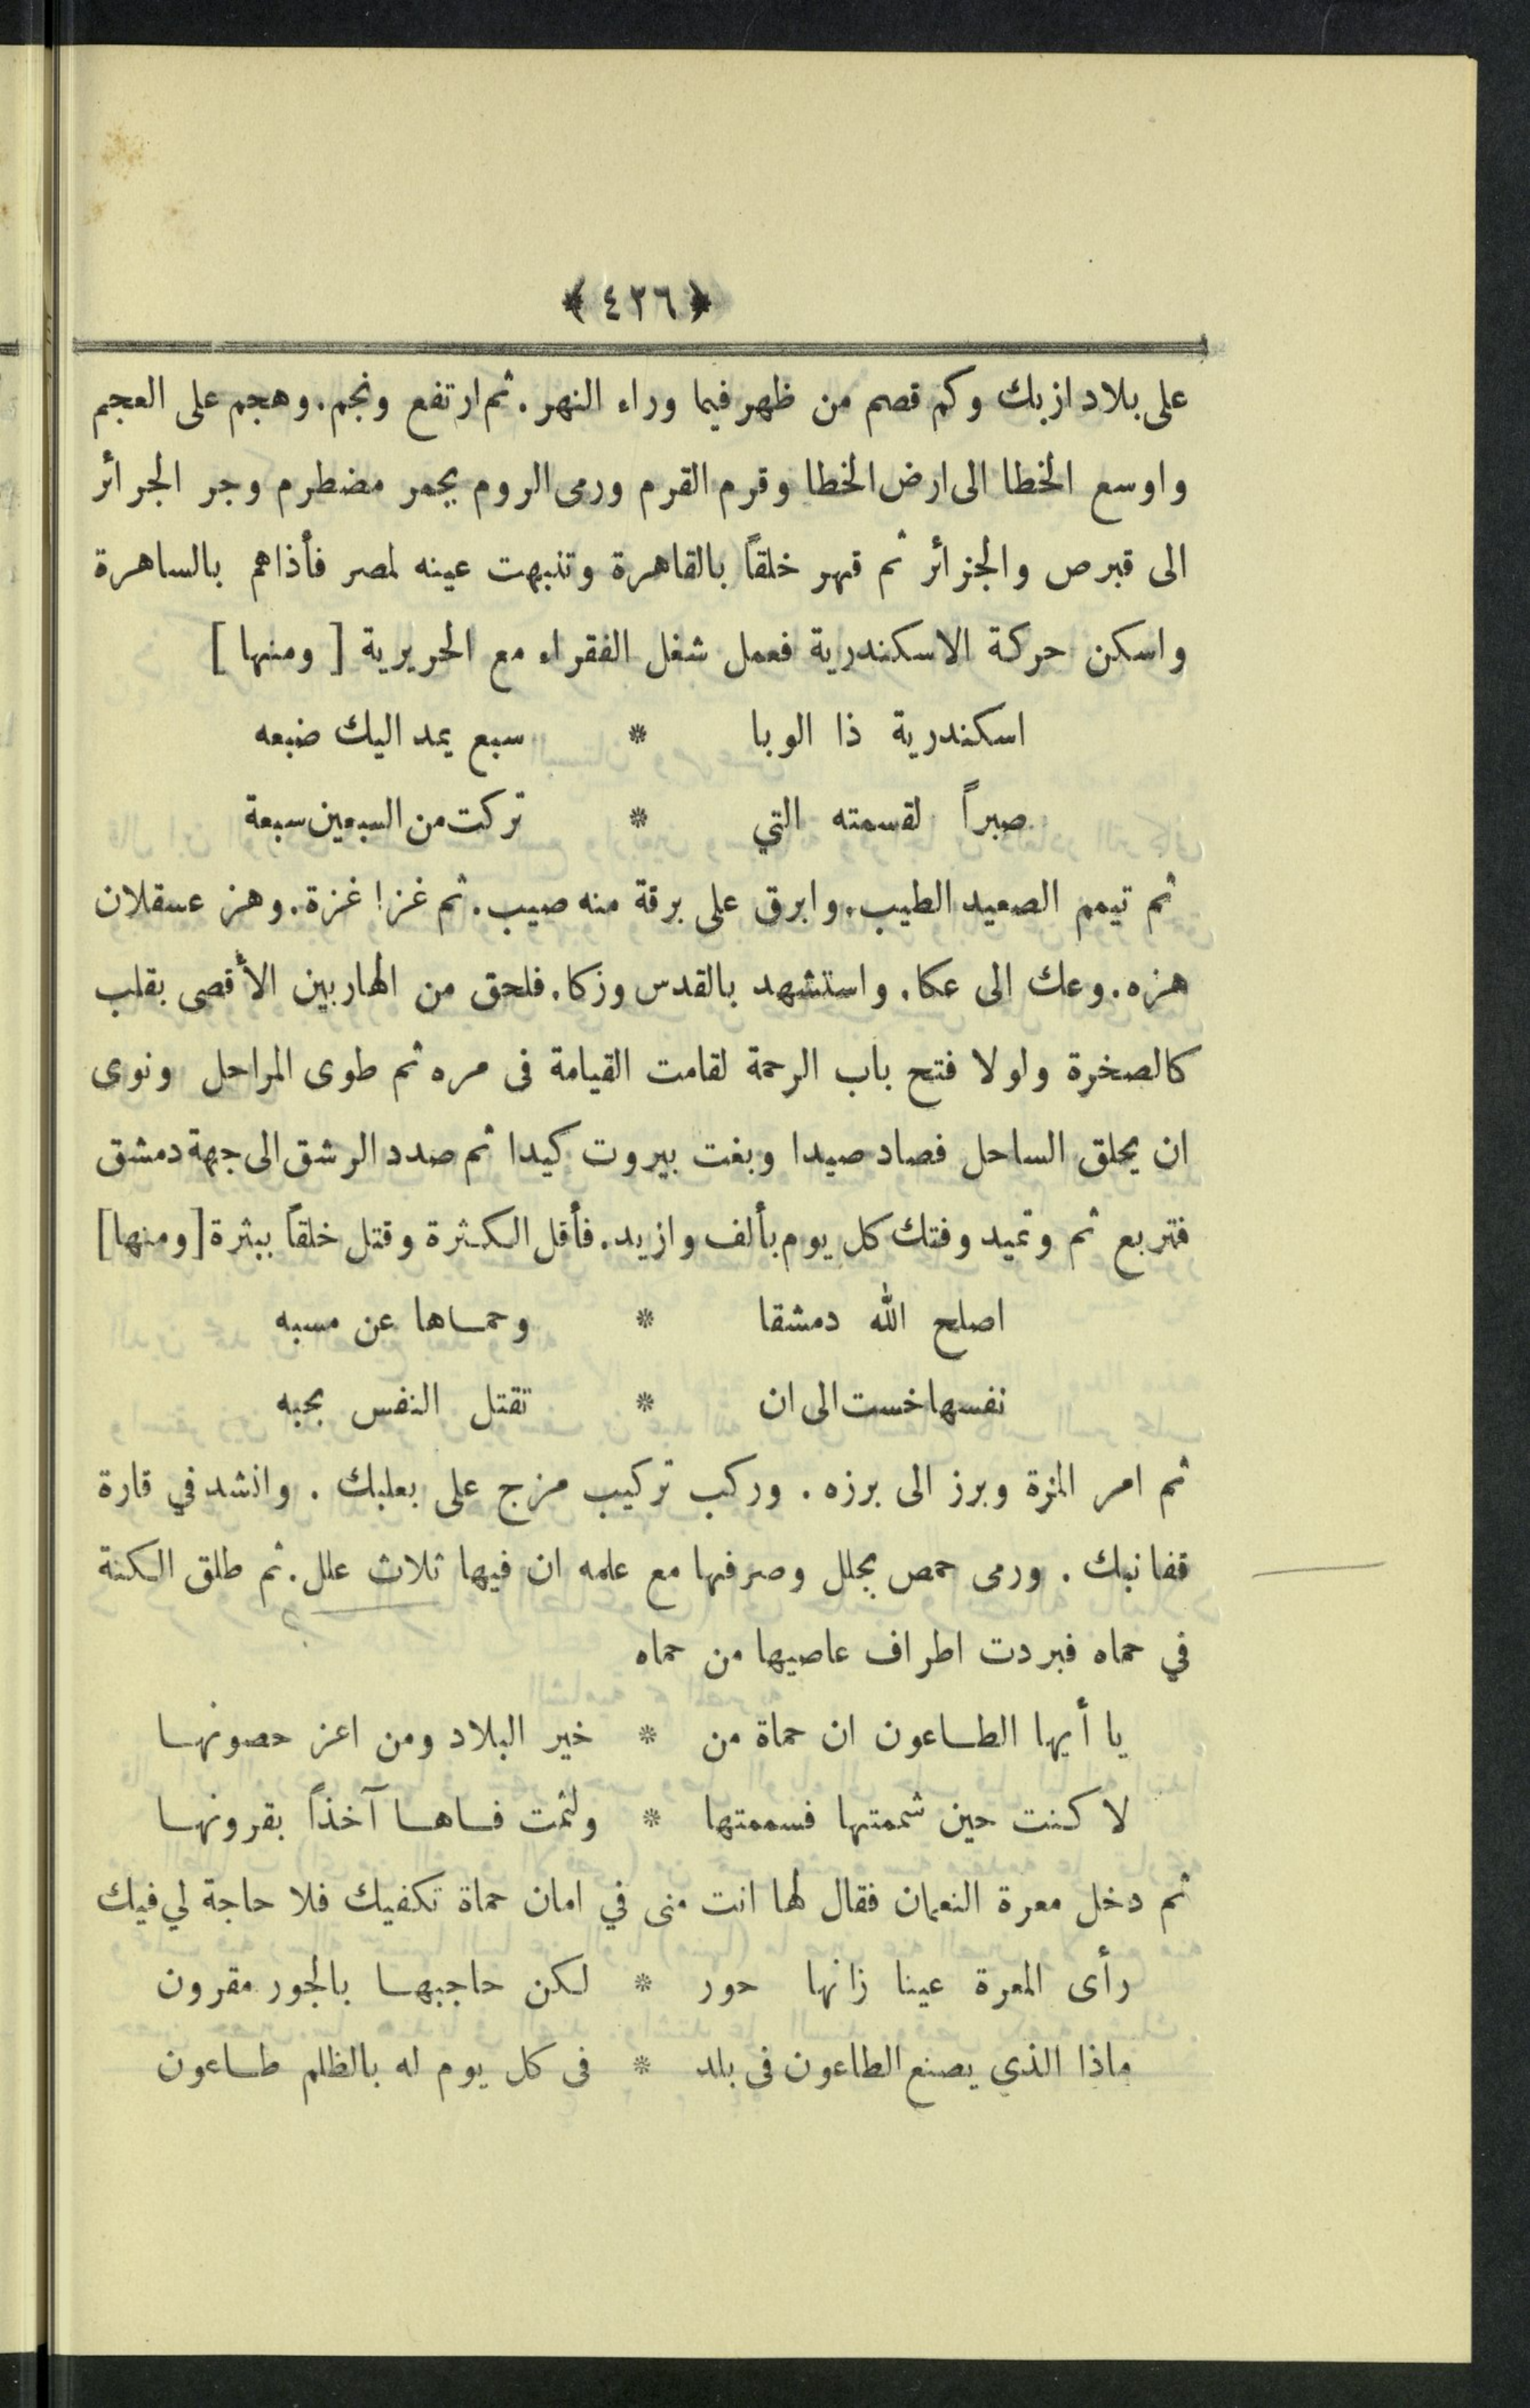 ﴿٤٢٦﴾
على بلاد ازبك وكم قصم من ظهر فيما وراء النهر. ثم ارتفع ونجم. وهجم على العجم
واوسع الخطا الى ارض الخطا وقرم القرم ورمى الروم بجمر مضطرم وجر الجرائر
الى قبرص والجزائر ثم قهر خلقاً بالقاهرة وتنبهت عينه لمصر فأذاهم بالساهرة
واسكن حركة الاسكندرية فعمل شغل الفقراء مع الحريرية [ ومنها ]
اسكندرية ذا الوبا * سبع يمد اليك ضبعه
صبراً لقسمته التي * تركت من السبعين سبعة
ثم تيمم الصعيد الطيب. وابرق على برقة منه صيب. ثم غزا غزة. وهز عسقلان
هزه. وعك الى عكا. واستشهد بالقدس وزكا. فلحق من الهاربين الأقصى بقلب
كالصخرة ولولا فتح باب الرحمة لقامت القيامة فى مره ثم طوى المراحل ونوى
ان يحلق الساحل فصاد صيدا وبغت بيروت كيدا ثم صدد الرشق الى جهة دمشق
فتربع ثم وتميد وفتك كل يوم بألف وازيد. فأقل الكثرة وقتل خلقاً ببثرة [ومنها]
اصلح الله دمشقا * وحماها عن مسبه
نفسها خست الى ان * تقتل النفس بحبه
ثم امر المزة وبرز الى برزه . وركب تركيب مزج على بعلبك . وانشد في قارة
قفا نبك . ورمى حمص بجلل وصرفها مع علمه ان فيها ثلاث علل. ثم طلق الكنة
في حماه فبردت اطراف عاصيها من حماه
يا أيها الطاعون ان حماة من * خير البلاد ومن اعز حصونها
لا كنت حين شممتها فسممتها * ولثمت فاها آخذاً بقرونها
ثم دخل معرة النعمان فقال لها انت منى في امان حماة تكفيك فلا حاجة لي فيك
رأى المعرة عينا زانها حور * لكن حاجبها بالجور مقرون
ماذا الذي يصنع الطاعون فى بلد * فى كل يوم له بالظلم طاعون